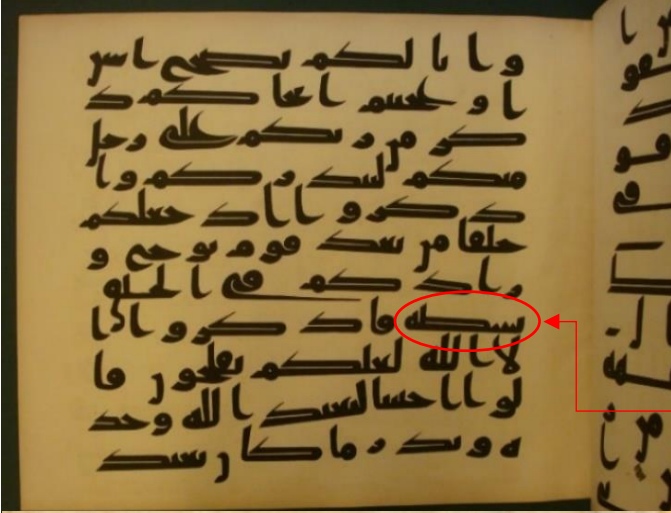 وانا لكم نصح امين
اوعجبتم ان جاكم ذ
كر من ربكم على رجل
منكم لينذركم وا
ذكروا اذ جعلكم
خلفا من بعد قوم نوح و
زادكم في الخلق
بسطه فاذكروا ا
لا الله لعلكم تفلحون قا
لوا اجيتنا لنعبد الله وحد
ه ونذر ما كان يعبد